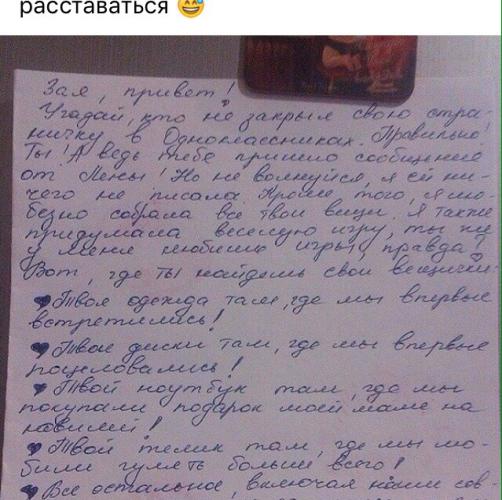 расставаться 😅
Зая, привет!
Угадай, кто не закрыл свою стра-
ничку в Одноклассниках. Правильно!
Ты! А ведь тебе пришло сообщение
от Лены! Но не волнуйся, я ей ни-
чего не писала. Кроме того, я лю-
безно собрала все твои вещи. Я также
придумала веселую игру, ты же
у меня любишь игры, правда?
Вот, где ты найдешь свои вещички:
♥ Твоя одежда там, где мы впервые
встретились!
♥ Твои диски там, где мы впервые
поцеловались!
♥ Твой ноутбук там, где мы
покупали подарок моей маме на
♥ Твой телик там, где мы лю-
били гулять больше всего!
♥ Все остальное, включая